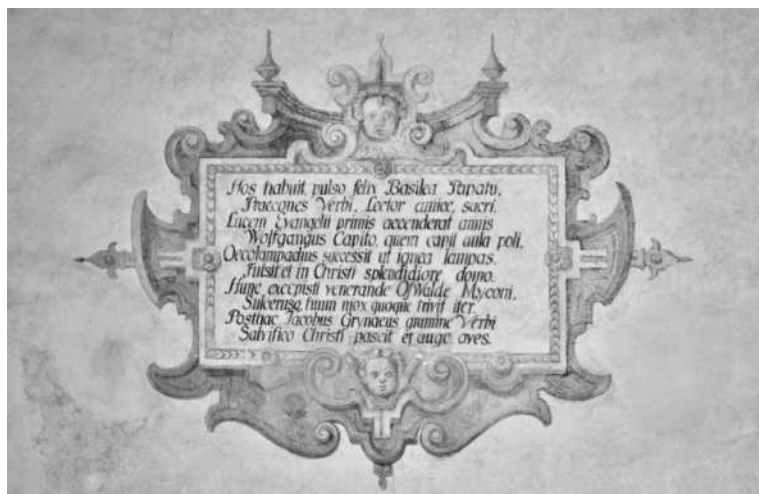 Hos habuit, pulso felix Basilea Papatu,
Praecones Verbi, Lector amice, sacri.
Lucem Evangelii primis accenderat annis
Wolfgangus Capito, quem capit aula poli.
Oecolampadius successit ut ignea lampas.
Fulsit et in Christi splendidiore domo.
Hunc excepisti venerande Oswalde Myconi,
Sulcerus tuum mox quoque trivit iter.
Posthac Jacobus Grynaeus gramine Verbi
Salvifico Christi pascit et auge oves.